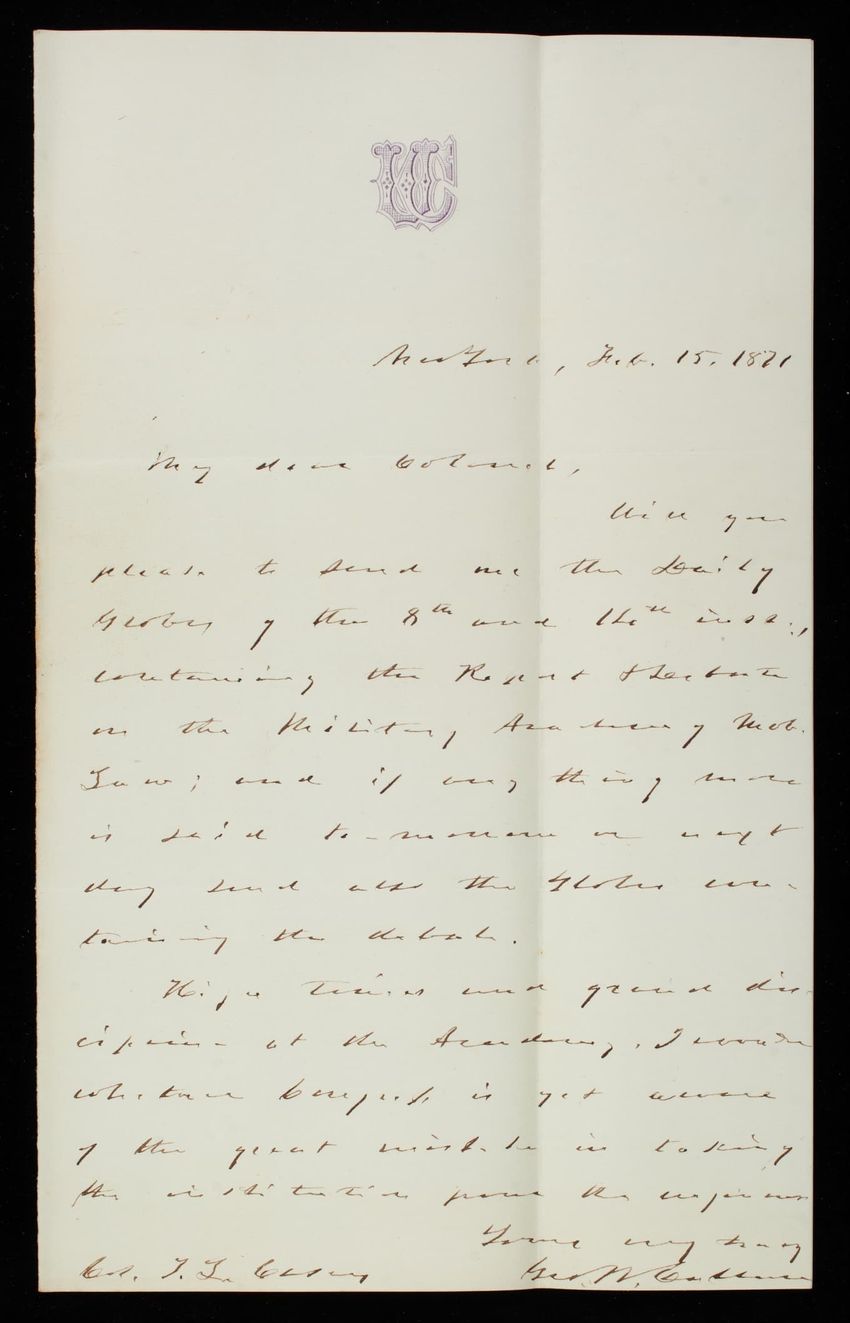 WC
New York, Feb. 15. 1871
My dear Colonel,
Will you
please to send me the Daily
Globes of the 8th and inst.,
containing the Report & Debate
on the Military Academy Mob.
Law; and if any thing more
is said to-morrow or next
day send also the Globes con-
taining the debate.
High times and grand dis-
cipline at the Academy. I wonder
whether Congress is yet aware
of the great mistake in taking
the institution from the engineers
Yours very truly
Geo. W. Cullum
Col. T. L. Casey